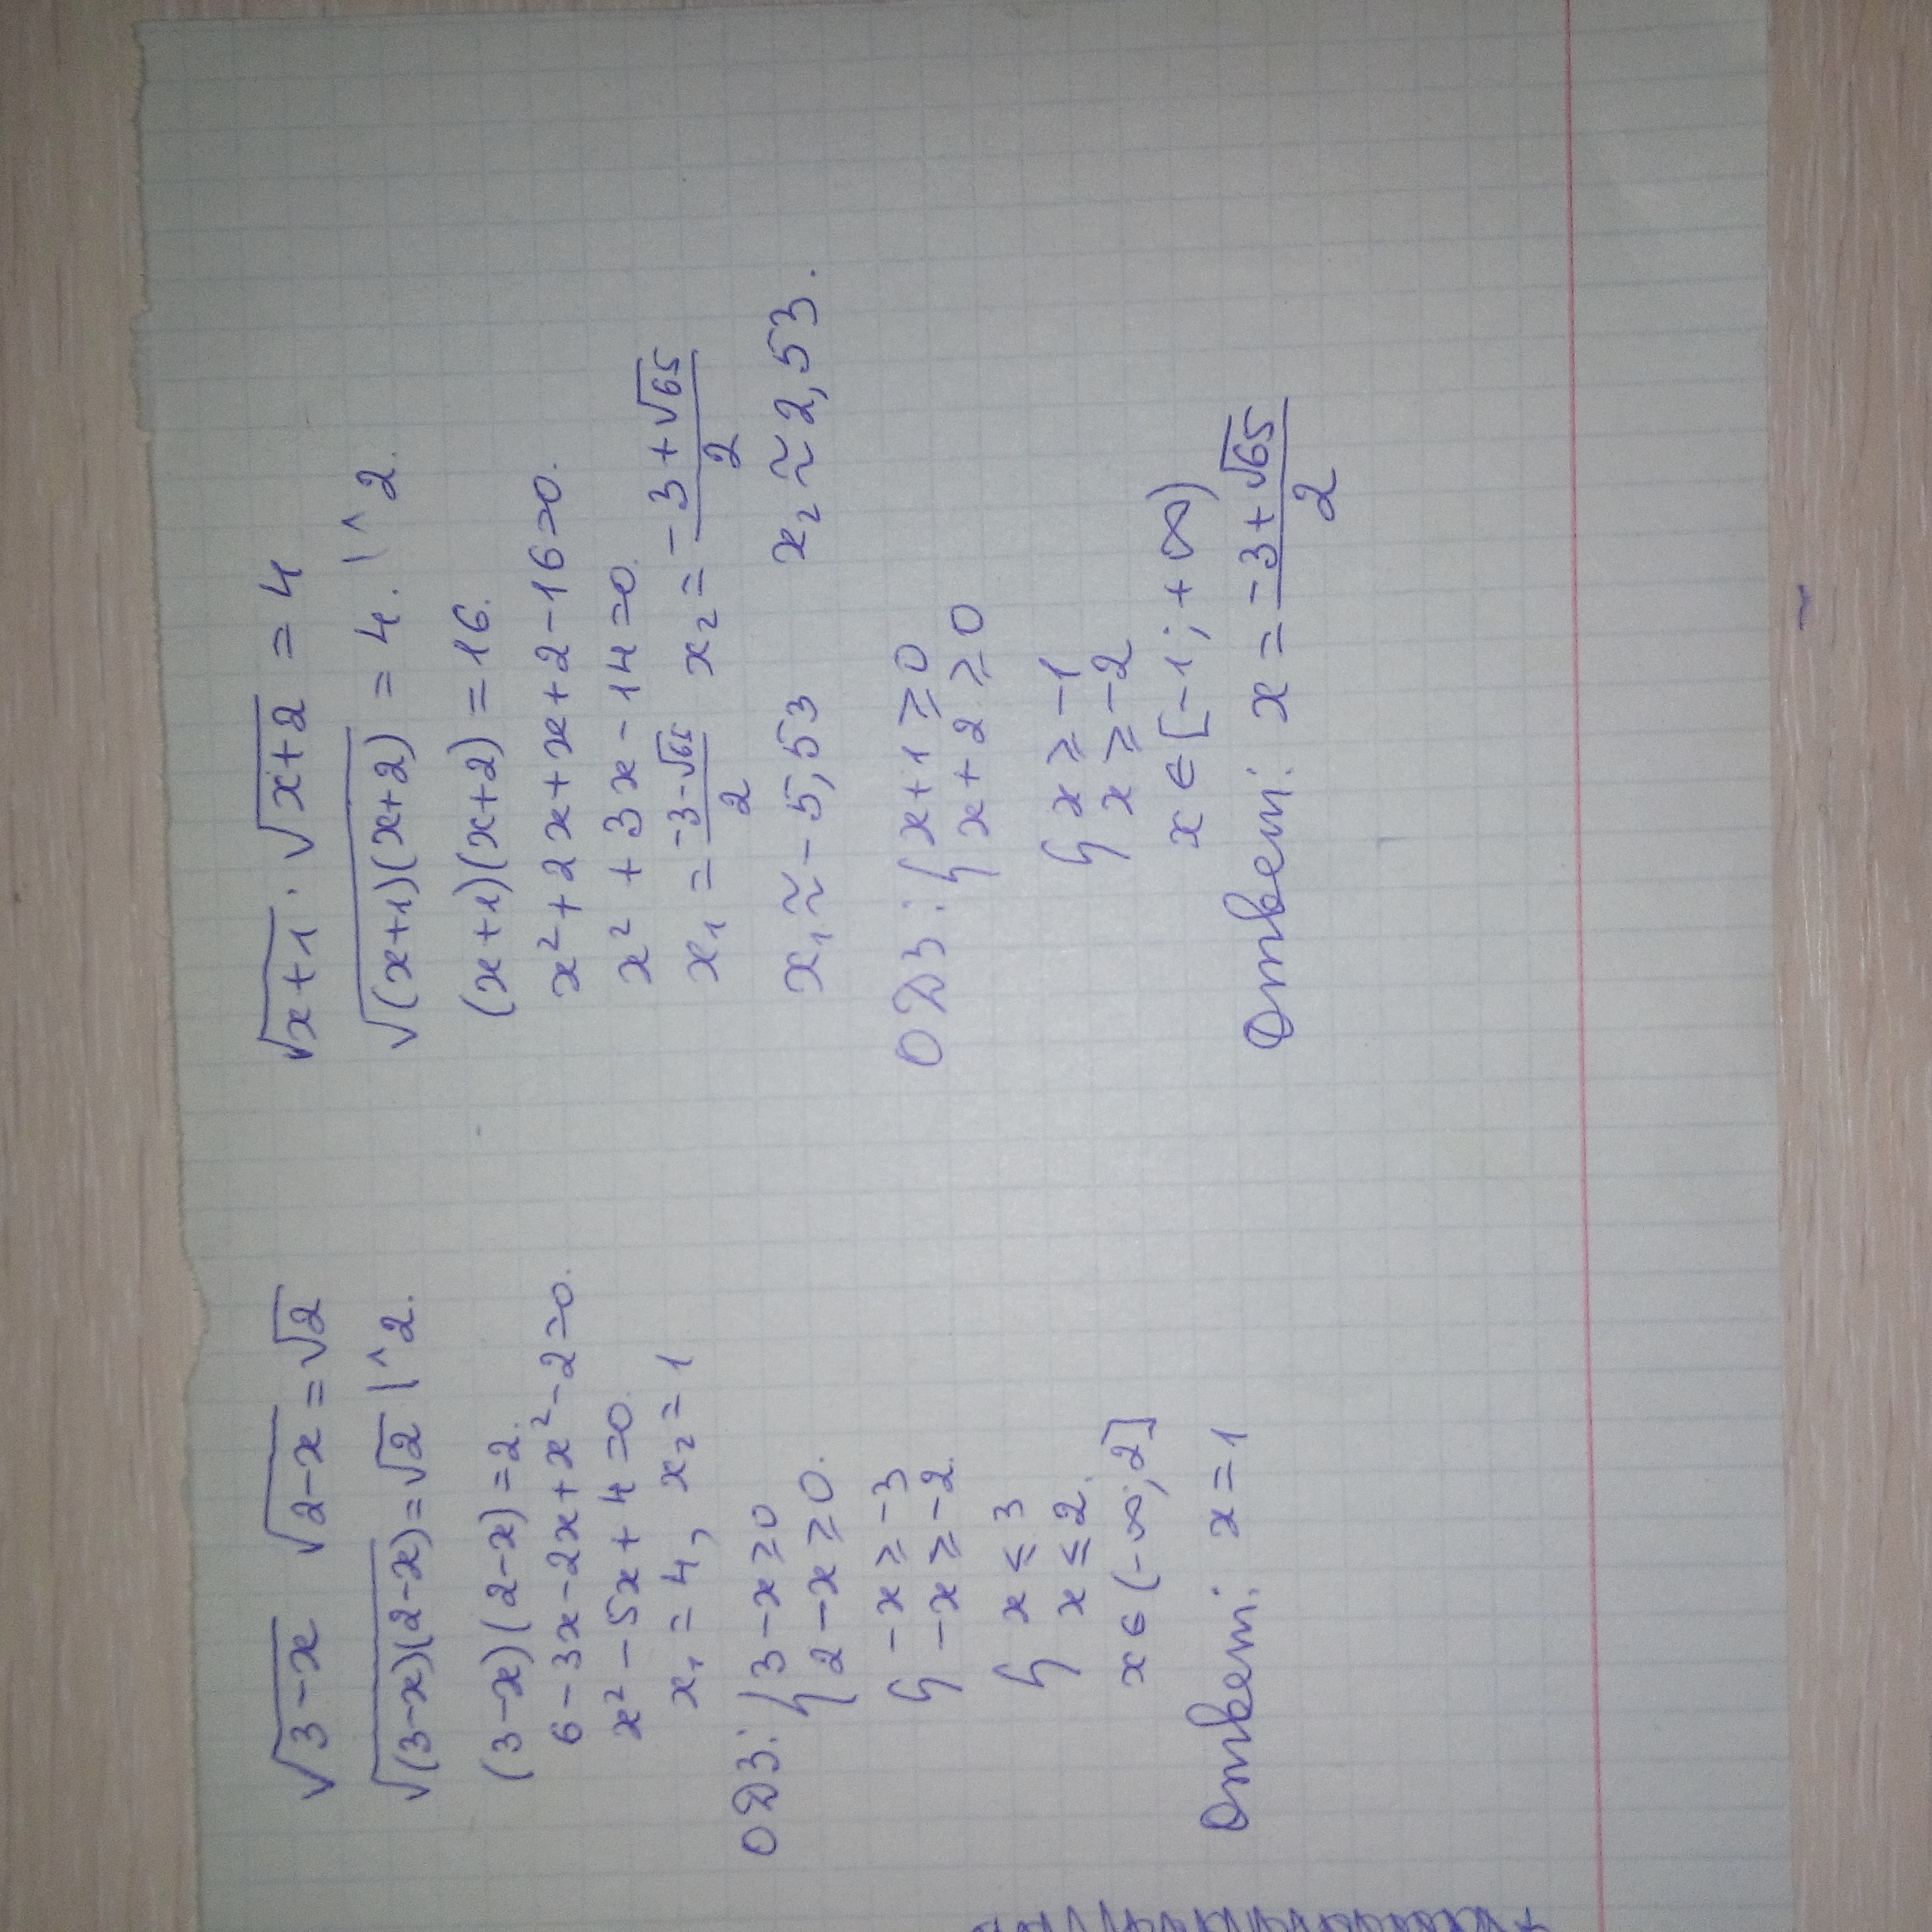 √3-x √2-x = √2
√(3-x)(2-x) = √2 |^2.
(3-x)(2-x) = 2.
6-3x-2x+x²-2=0.
x²-5x+4=0.
x₁=4, x₂=1
ОДЗ: { 3-x ≥ 0
2-x ≥ 0.
{ -x ≥ -3
-x ≥ -2.
{ x ≤ 3
x ≤ 2.
x ∈ (-∞; 2]
Ответ: x=1
√x+1 · √x+2 = 4
√(x+1)(x+2) = 4. |^2.
(x+1)(x+2) = 16.
x²+2x+x+2-16=0.
x²+3x-14=0.
x₁ = (-3-√65)/2 x₂ = (-3+√65)/2
x₁ ≈ -5,53 x₂ ≈ 2,53.
ОДЗ: { x+1 ≥ 0
x+2 ≥ 0
{ x ≥ -1
x ≥ -2
x ∈ [-1; +∞)
Ответ: x = (-3+√65)/2